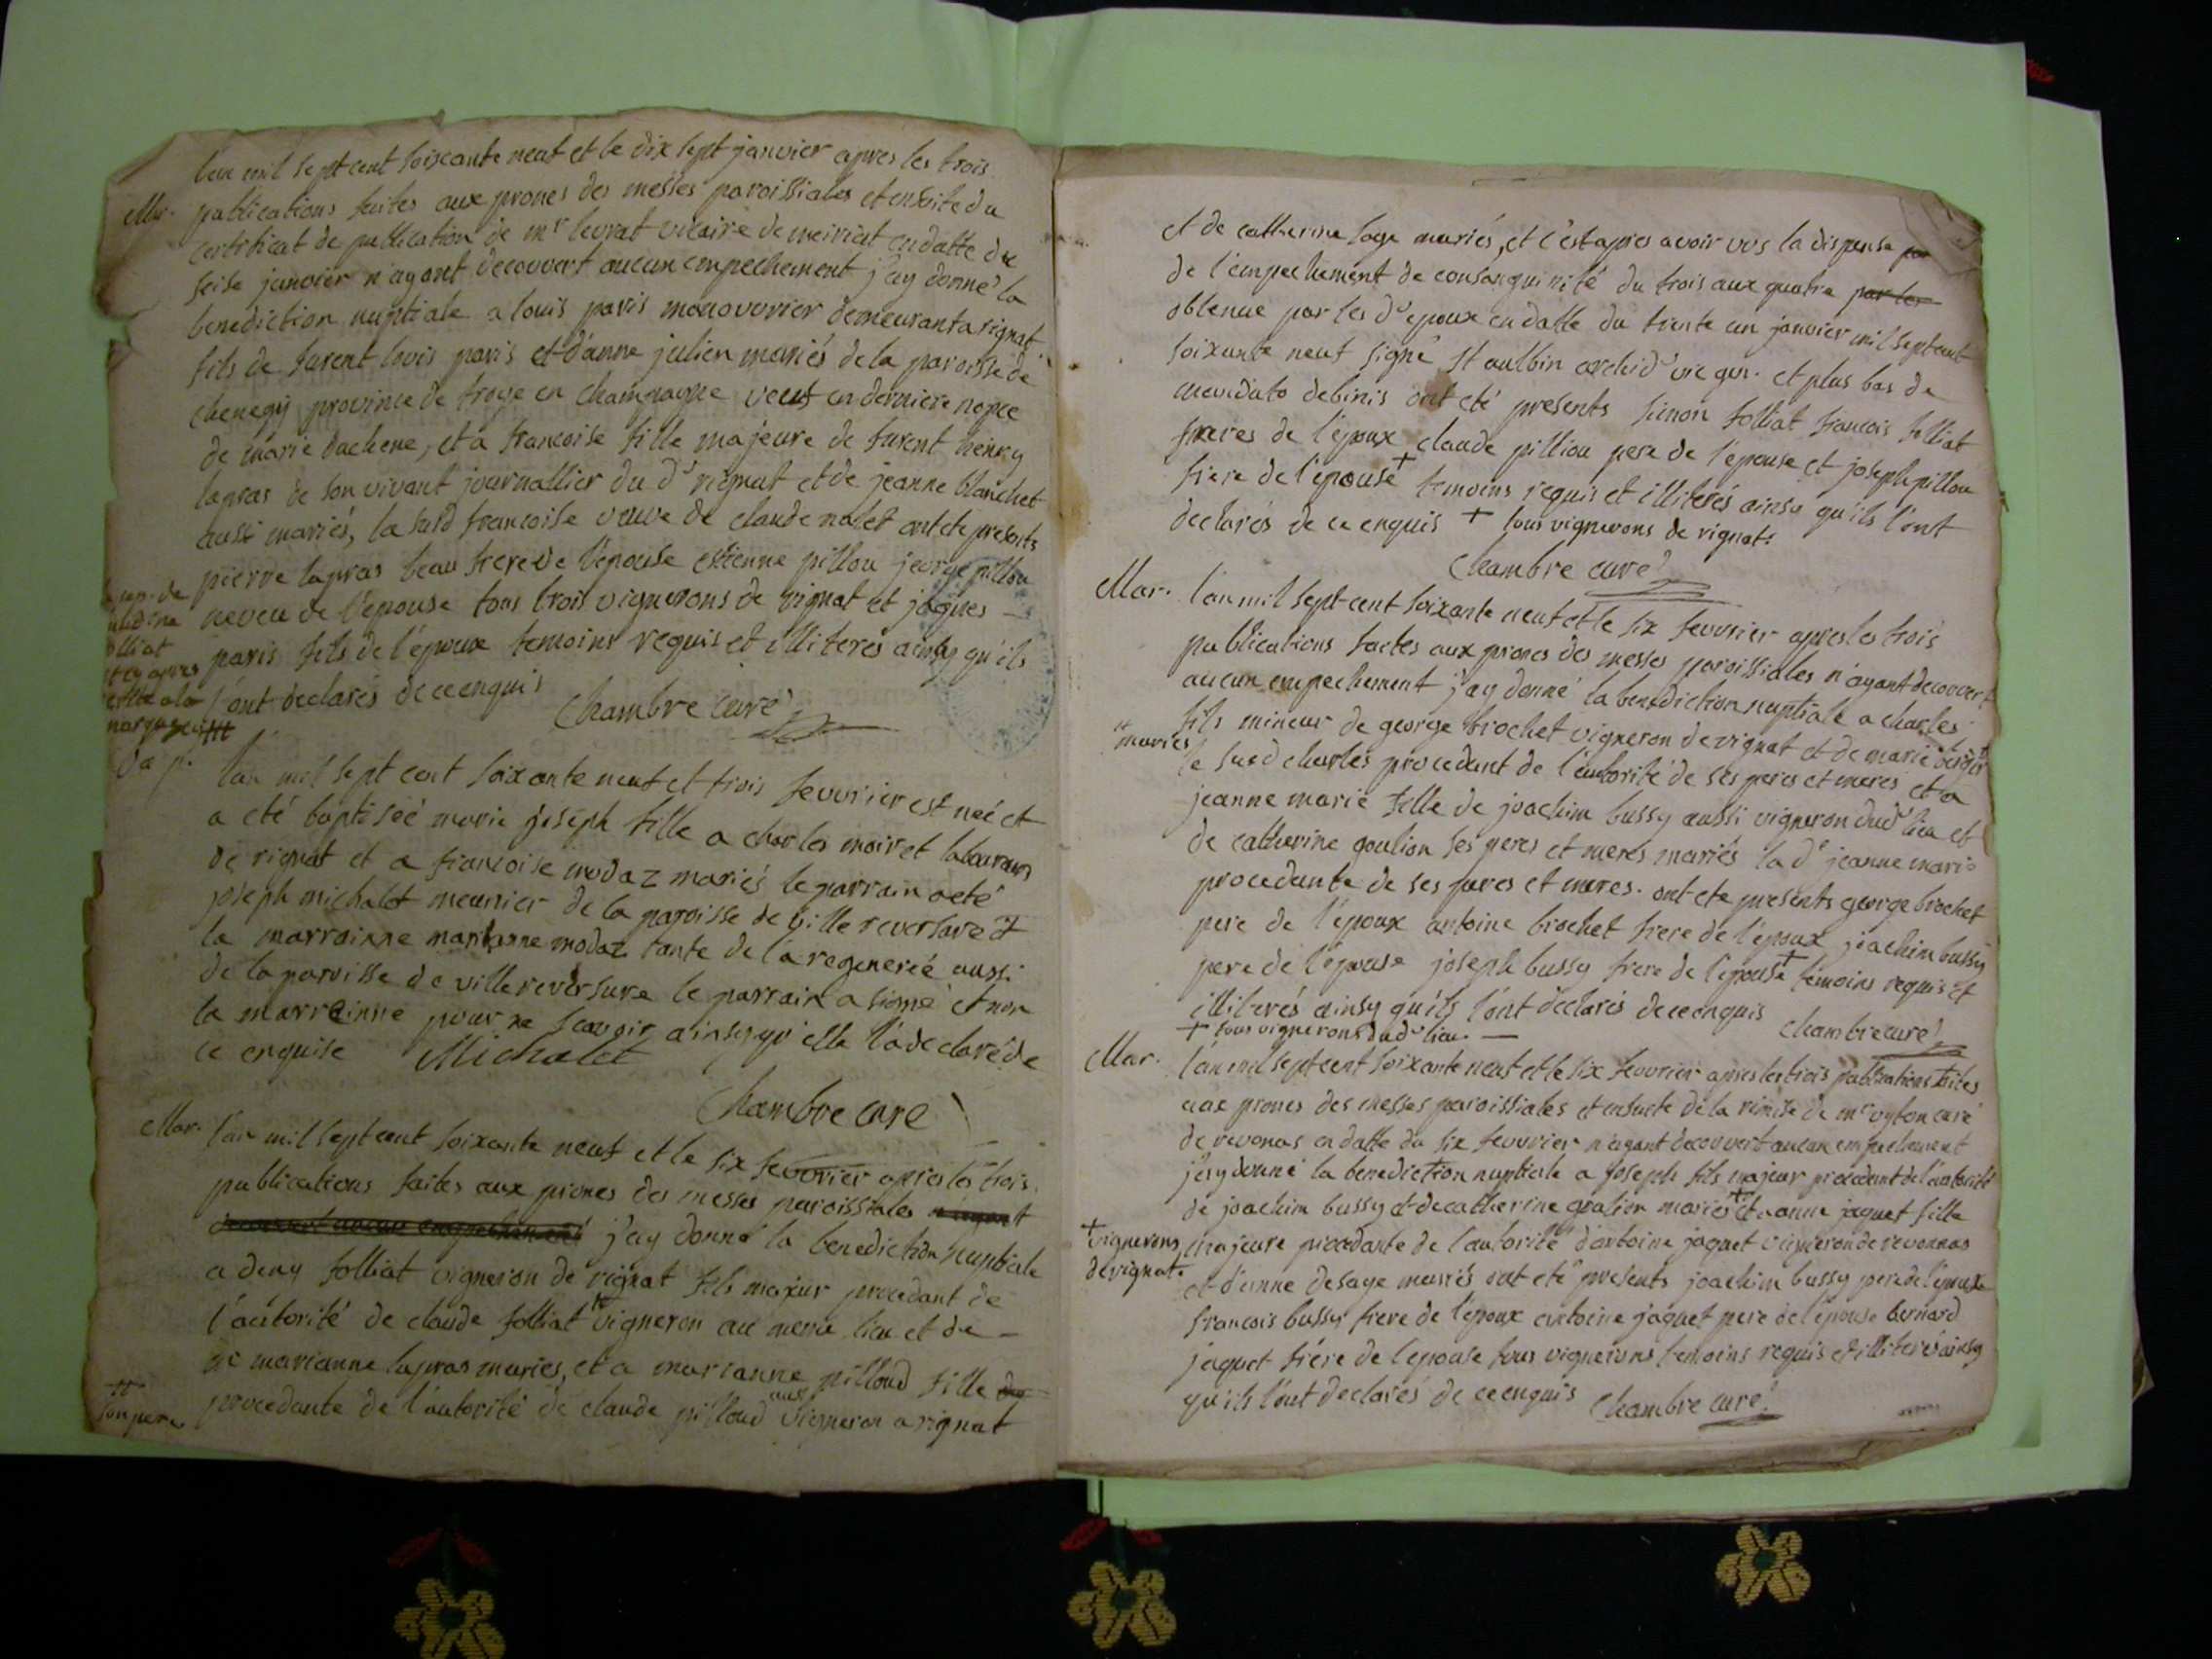 l'an mil sept cent soixante neuf et le dix sept janvier apres les trois
Mar. publications faites aux prones des messes paroissiales et ensuite du
certificat de publication de mr levrat vicaire de meiriat en datte du
seise janvier n'ayant decouvert aucun empechement j'ay donné la
benediction nuptiale a louis paris manouvrier demeurant a rignat
fils de furent louis paris et d'anne julien mariés de la paroisse de
chenegy province de troye en champagne veuf en derniere nopce
de marie duchene, et a francoise fille majeure de furent henry
lapras de son vivant journallier du dt rignat et de jeanne blanchet
aussi mariés, la susd francoise veuve de claude nalet ont ete presents
pierre lapras beau frere de l'epouse estienne pillou jeorge pillou
neveu de l'epouse tous trois vignerons de rignat et jaques
paris fils de l'époux temoins requis et illiterés ainsy qu'ils
l'ont declarés de ce enquis
chambre curé
folliat
et cy apres
a la
marge
Bap. l'an mil sept cent soixante neuf et trois fevvrier est neé et
a eté baptiseé marie joseph fille a charles moiret laboureurs
de rignat et a francoise modaz mariés le parrain a eté
joseph michalet meunier de la paroisse de villereversure et
la marrainne marianne modaz tante de la regenereé aussi
de la paroisse de villereversure le parrain a signé et non
la marrainne pour ne scavoir ainsy qu'elle l'a declaré de
ce enquise Michalet
Chambre curé
Mar. l'an mil sept cent soixante neuf et le six fevvrier apres les trois
publications faites aux prones des messes paroissiales n'ayant
decouvert aucun empechement j'ay donné la benediction nuptiale
a deny folliat vigneron de rignat fils majeur procedant de
l'autorité de claude folliat vigneron au meme lieu et de
marianne lapras mariés, et a marianne pilloud fille
procedante de l'autorité de claude pilloud aussi vigneron a rignat
son pere
et de catherine sage mariés, et c'est apres avoir vus la dispense par
de l'empechement de consanguinité du trois aux quatre par les
obtenue par les dt epoux en datte du trente un janvier mil sept cent
soixante neuf signé st aulbin archid vic gen. et plus bas de
mandato debinis ont eté presents simon folliat francois folliat
freres de l'époux claude pilliou pere de l'epouse et joseph pillou
frere de l'epouse + temoins requis et illiterés ainsy qu'ils l'ont
declarés de ce enquis + tous vignerons de rignat.
Chambre curé
Mar. l'an mil sept cent soixante neuf et le six fevvrier apres les trois
publications faites aux prones des messes paroissiales n'ayant decouvert
aucun empechement j'ay donné la benediction nuptiale a charles
fils mineur de george brochet vigneron de rignat et de marie berger
mariés
le susd charles procedant de l'autorité de ses peres et meres et a
jeanne marie fille de joachim bussy aussi vigneron dud lieu et
de catherine goulion ses peres et meres mariés la dt jeanne marie
procedante de ses peres et meres. ont ete presents george brochet
pere de l'époux antoine brochet frere de l'époux joachim bussy
pere de l'épouse joseph bussy frere de l'epouse + témoins requis et
illiterés ainsy qu'ils l'ont declarés de ce enquis
+ tous vignerons dudt lieu. Chambre curé
Mar. l'an mil sept cent soixante neuf et le six fevvrier apres les trois publications faites
aux prones des messes paroissiales et ensuite de la remise de mr curé
de revonas en datte du six fevvrier n'ayant decouvert aucun empechement
j'ay donné la benediction nuptiale a joseph fils majeur procedant de l'autorité
de joachim bussy et de catherine goulion mariés + et a anne jaquet fille
+ vignerons
de rignat.
majeure procedante de l'autorité d'antoine jaquet vigneron de revonnas
et d'anne desaye mariés ont eté presents joachim bussy pere de l'époux
francois bussy frere de l'époux antoine jaquet pere de l'épouse bernard
jaquet frére de l'epouse tous vignerons temoins requis et illiterés ainsy
qu'ils l'ont declarés de ce enquis Chambre curé